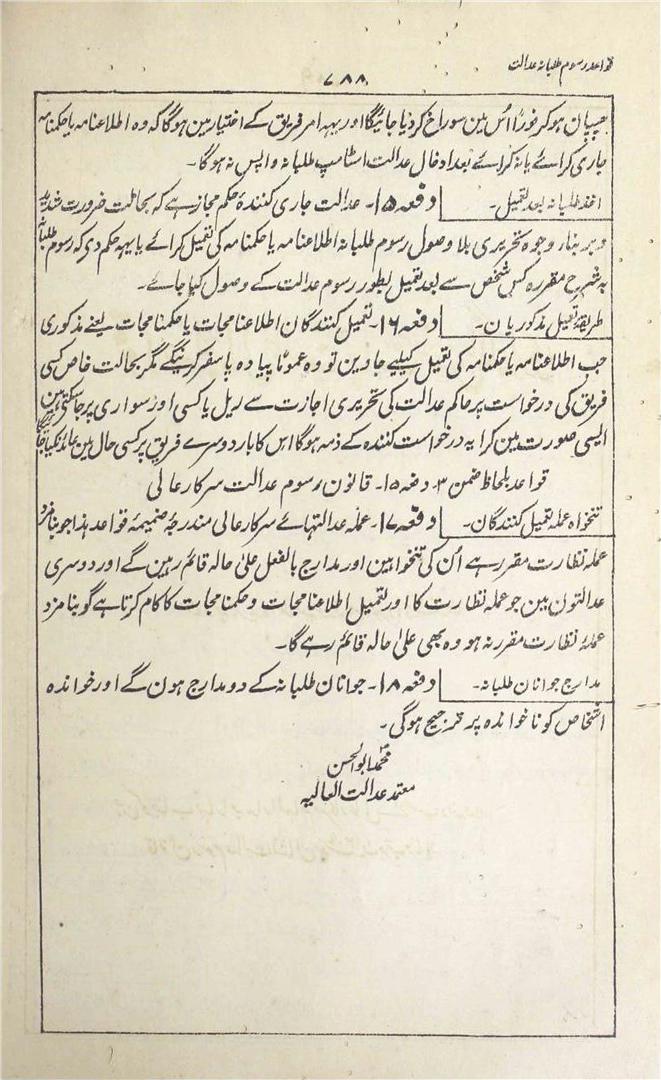 قواعد رسوم طلبانہ عدالت
۷۸۸
چسپان ہو کر فوراً اُس مین سوراخ کر دیا جائیگا اور یہہ امر فریق کے اختیار مین ہوگا کہ وہ اطلاعنامہ یا حکمنامہ
جاری کرائے یا نہ کرائے بعد ادخال عدالت اسٹامپ طلبانہ واپس نہ ہوگا۔
اخذ طلبانہ بعد تعمیل۔ دفعہ ۱۵۔ عدالت جاری کنندۂ حکم مجاز ہے کہ بحالت ضرورت شدید
و بر بنار وجوہ تحریری بلا وصول رسوم طلبانہ اطلاعنامہ یا حکمنامہ کی تعمیل کرائے یا یہہ حکم دی کہ رسوم طلبانہ
بہ شروح مقررہ کس شخص سے بعد تعمیل بطور رسوم عدالت کے وصول کیا جائے۔
طریقۂ تعمیل مذکوریان۔ دفعہ ۱۶۔ تعمیل کنندگان اطلاعنامجات یا حکمنامجات یعنے مذکوری
جب اطلاعنامہ یا حکمنامہ کی تعمیل کیلیے جاوین تو وہ عموماً پیادہ پا سفر کرینگے مگر بحالت خاص کسی
فریق کی درخواست پر حاکم عدالت کی تحریری اجازت سے ریل یا کسی اور سواری پر جا سکتی ہین مگر
ایسی صورت مین کرایہ درخواست کنندہ کے ذمہ ہوگا اس کا بار دوسرے فریق پر کسی حال مین عائد نکیا جائیگا
قواعد بلحاظ ضمن ۳۔ دفعہ ۱۵۔ قانون رسوم عدالت سرکار عالی
تنخواہ عملہ تعمیل کنندگان۔ دفعہ ۱۷۔ عملہ عدالتہائے سرکار عالی مندرجۂ ضمیمۂ قواعد ہذا جو بنامزد
عملہ نظارت مقرر ہے اُن کی تنخواہین اور مدارج بالفعل علیٰ حالہ قائم رہین گے اور دوسری
عدالتون مین جو عملہ نظارت کا اور تعمیل اطلاعنامجات و حکمنامجات کا کام کرتا ہے گو بنامزد
عملہ نظارت مقرر نہ ہو وہ بھی علیٰ حالہ قائم رہے گا۔
مدارج جوانان طلبانہ۔ دفعہ ۱۸۔ جوانان طلبانہ کے دو مدارج ہون گے اور خواندہ
اشخاص کو ناخواندہ پر ترجیح ہوگی۔
محمد ابو الحسن
معتمد عدالت العالیہ